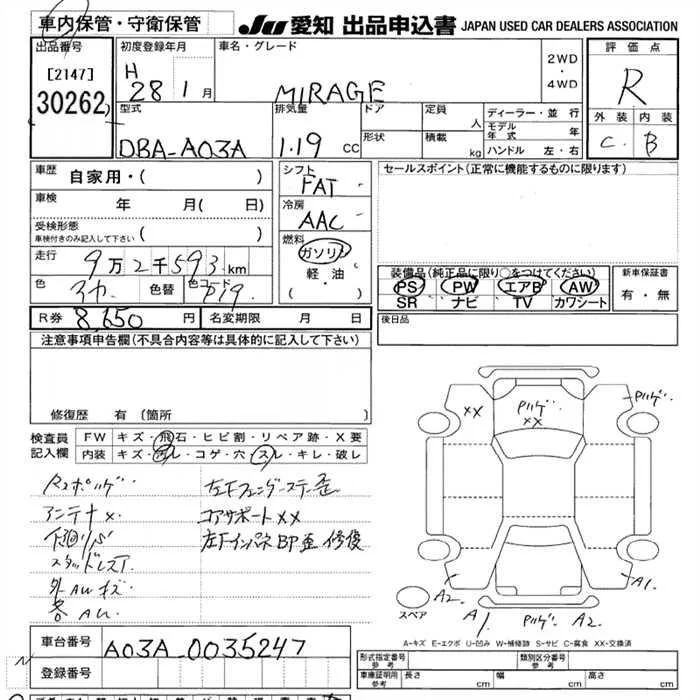 車内保管・守衛保管
JU 愛知 出品申込書 JAPAN USED CAR DEALERS ASSOCIATION
出品番号
[2147]
30262
初度登録年月
H 28 1月
車名・グレード
MIRAGE
2WD
・
4WD
評価点
R
外装 内装
C B
型式
DBA-A03A
排気量
1.19 cc
ドア
形状
定員 人
積載 kg
ディーラー・並行
モデル年式 年
ハンドル 左・右
車歴 自家用・( )
車検 年 月( 日)
受検形態
車検付きのみ記入して下さい ( )
走行 9万2千593km
色 色替 色コード P19
シフト
FAT
冷房
AAC
燃料
ガソリン
軽・油
( ・ )
セールスポイント(正常に機能するものに限ります)
装備品(純正品に限り○をつけてください)
PS PW エアB AW
SR ナビ TV カワシート
新車保証書
有・無
R券 8,650円 名変期限 月 日
後日品
注意事項申告欄(不具合内容等は具体的に記入して下さい)
修復歴 有(箇所
検査員
記入欄
FW キズ・飛石・ヒビ割・リペア跡・X要
内装 キズ・汚レ・コゲ・穴・スレ・キレ・破レ
アンテナ×
下廻りS
スタッドレスT
外AWキズ
左Fフェンダーステー歪
コアサポートXX
左Fインパネ BP歪 修復
XX
Pハゲ
XX
Pハゲ
A2
A1
Pハゲ
A2
A1
スペア
A-キズ E-エクボ U-凹み W-補修跡 S-サビ C-腐食 XX-交換済
車台番号 A03A-0035247
登録番号
形式指定番号
参考
類別区分番号
参考
車庫証明用
参考
長さ cm 幅 cm 高さ cm